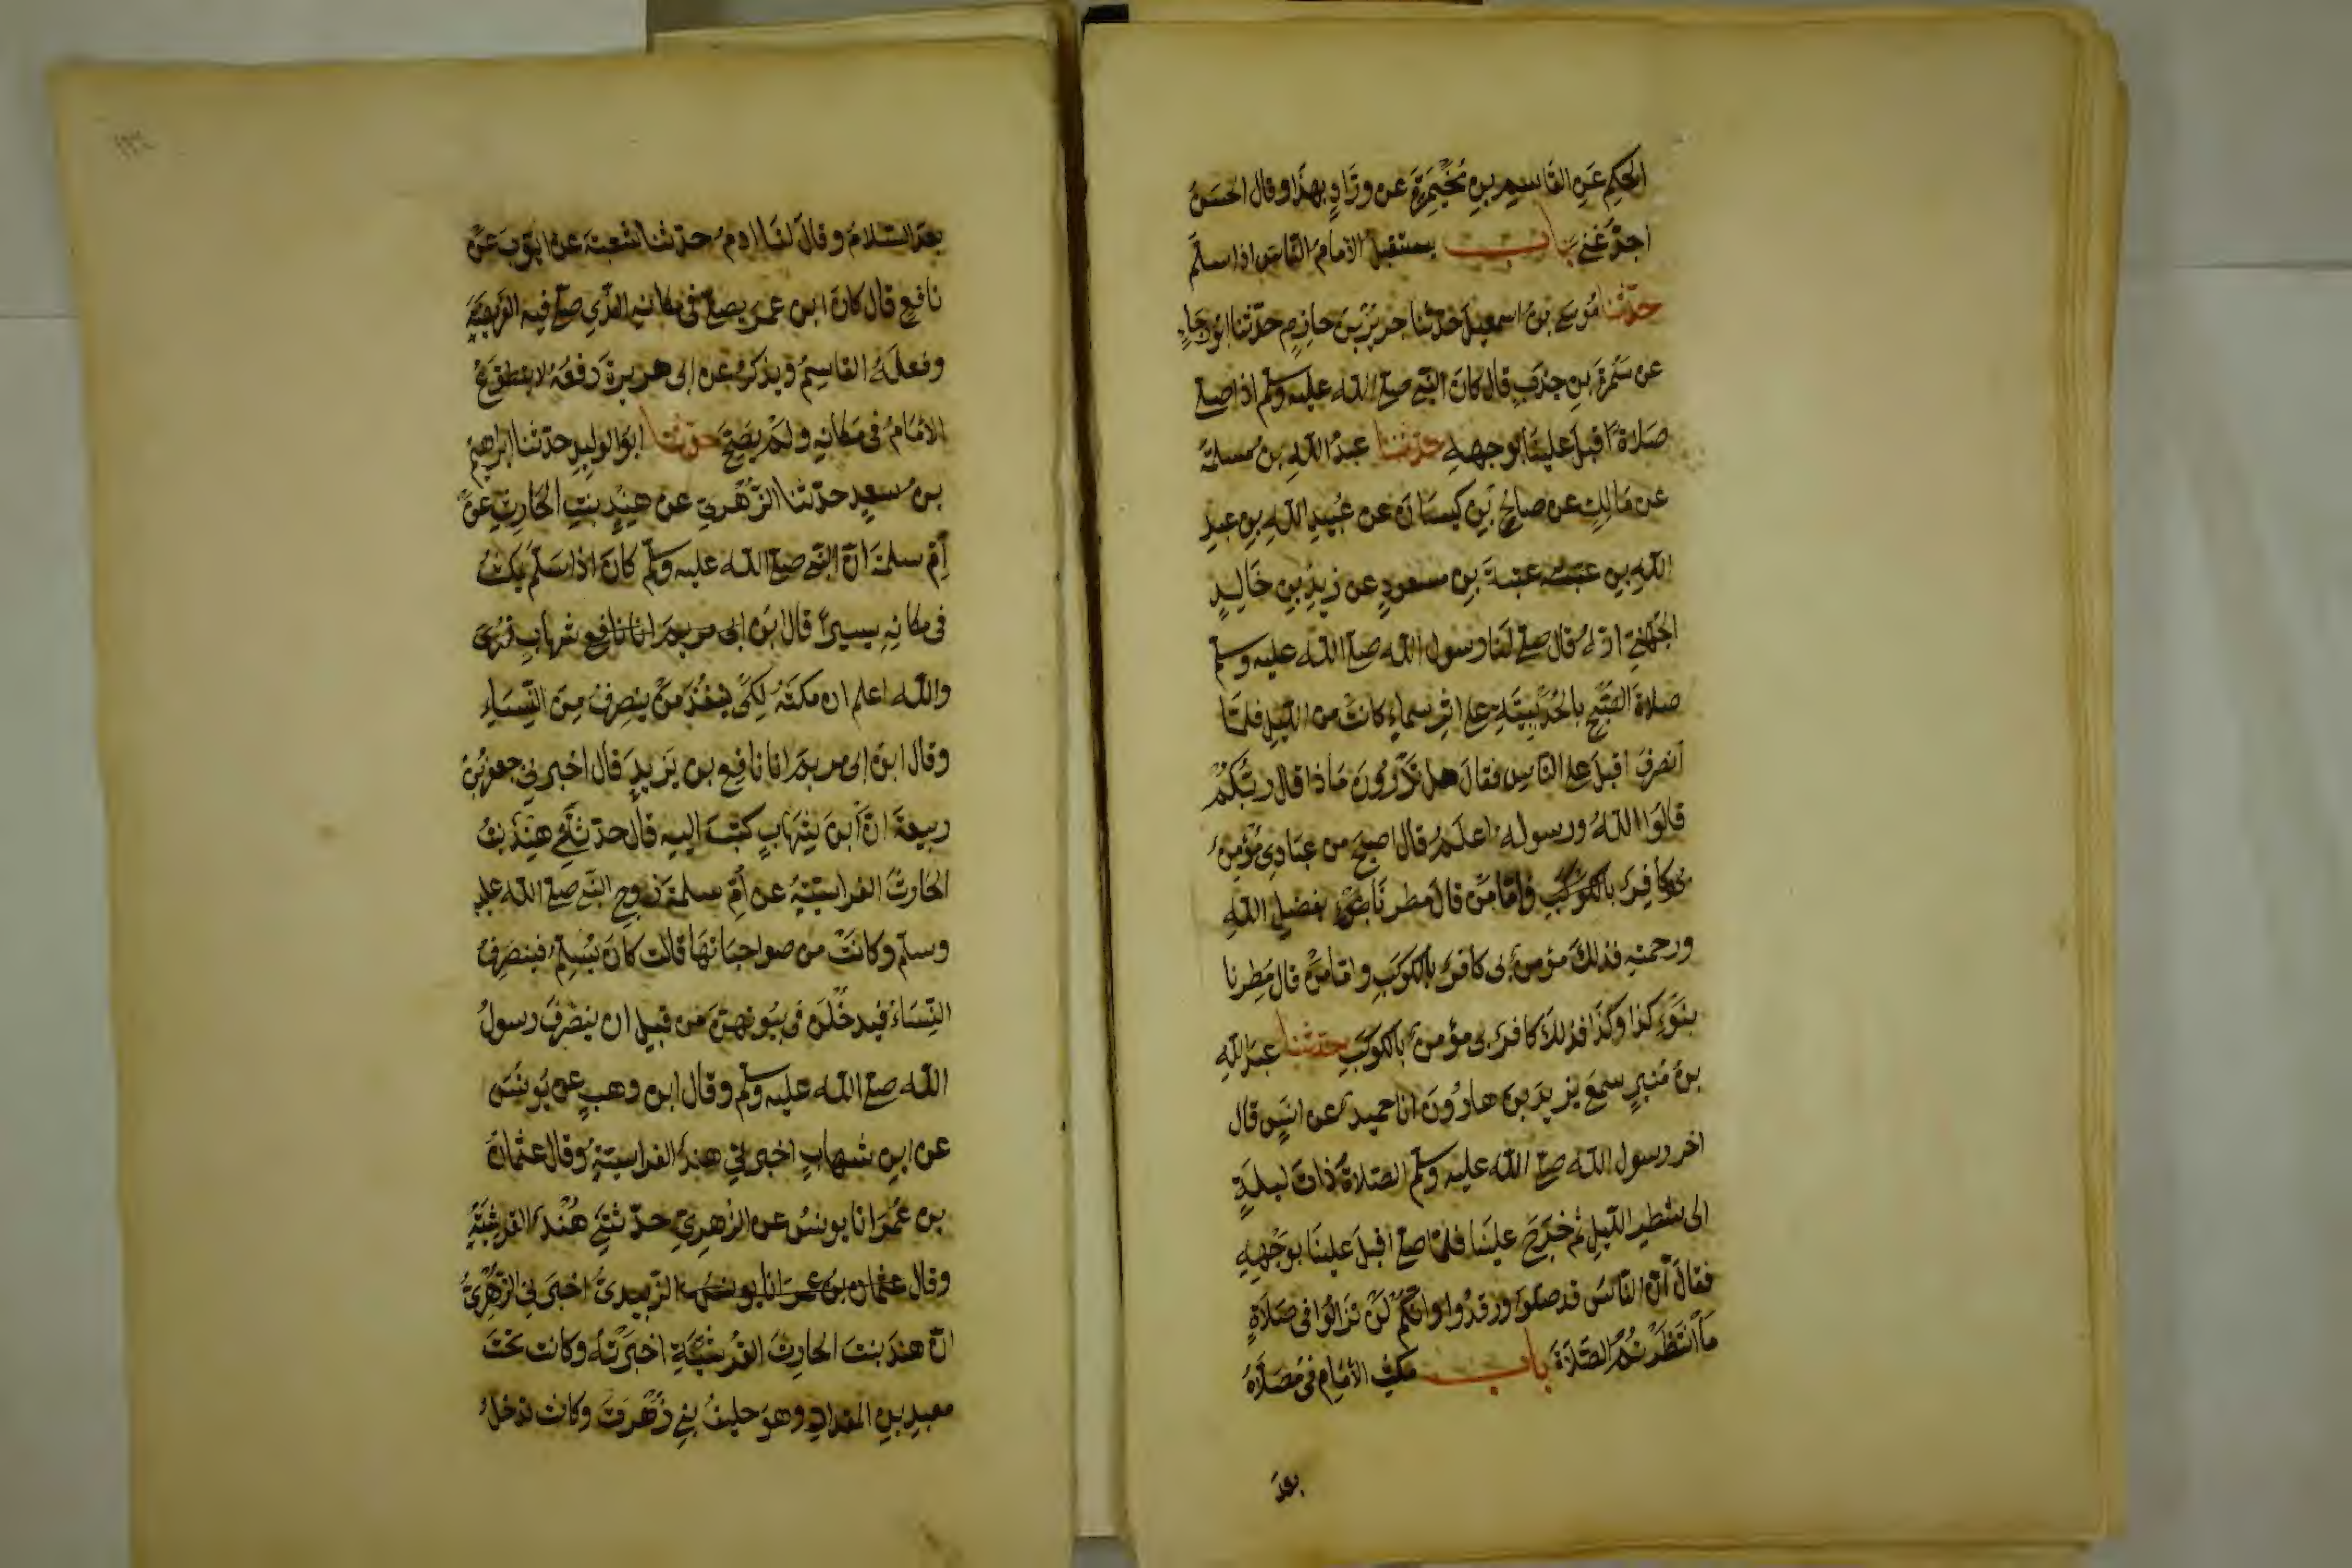 الحكم عَنِ القَاسِمِ بنِ مُخَيْمِرَةَ عن ورّادٍ بهذا وقال الحسَنُ
اجدّ غنى باب يستقبل الامام الناس اذا سلم
حدّثنا مُوسى بنُ اسمعيل حدّثنا جرير بن حازم حدّثنا ابو رجاء
عن سمُرَةَ بنِ جندبٍ قال كانَ النّبي صلى الله عليه وسلم اذا صلى
صَلاةً اقبَلَ علينَا بوجههِ حدّثنا عبدُ اللهِ بنُ مسلمة
عن مَالِكٍ عن صالح بنِ كيسَانَ عن عُبيدِ اللهِ بنِ عبدِ
اللهِ بنِ عتبة بنِ مسعودٍ عن زيدِ بنِ خَالِدٍ
الجُهَنيّ انّهُ قال صلى لنَا رسول الله صلى الله عليه وسلم
صلاةَ الصّبحِ بالحُدَيبيَّةِ على اثر سماءٍ كانَت من الليلِ فلمّا
انصَرفَ اقبَلَ على الناسِ فقالَ هل تدْرُونَ مَاذا قال ربّكُمْ
قالوا اللهُ ورسوله اعلَمُ قال اصبَحَ من عبَادِي مُؤْمِنٌ
بى وكافِرٌ بالكوكَبِ وامّا مَن قالَ مطِرنَا بفضلِ اللهِ
ورحمته فذلكَ مؤمنٌ بى كافرٌ بالكوكَبِ وامّا مَنْ قال مُطِرنا
بنَوْءِ كذا وكَذَا فذلكَ كافرٌ بى مؤمنٌ بالكوكَبِ حدّثنا عبدُ اللهِ
بنُ مُنيرٍ سمعَ يزيدَ بنَ هارُونَ انا حميدٌ عن انَسٍ قال
اخر رسول الله صلى الله عليه وسلم الصلاةَ ذاتَ ليلةٍ
الى شطرِ الليلِ ثم خرَجَ علينَا فلمّا صلى اقبَلَ علينَا بوَجْههِ
فقالَ انّ النّاسَ قد صَلّوا ورقدُوا وانّكُم لَنْ تزالُوا فى صَلاةٍ
مَا انتَظَرْتُمُ الصّلاةَ باب مكثِ الامَامِ فى مُصَلاهُ
بعدَ
بعدَ السّلامَ وقالَ لنَا ادمُ حدّثنا شعبة عن ايّوبَ عَنْ
نافعٍ قال كانَ ابن عمر يصلى فى مكانهِ الذّي صلى فيه الفريضَة
وفعلَهُ القاسِمُ ويذكرُ عن ابى هريرةَ رفعَهُ لا يتطوّع
الامَامُ فى مكانهِ ولَمْ يصِحّ حدّثنا ابو الوليدِ حدّثنا ابراهيم
بنُ سعيد حدّثنا الزّهْرىّ عن هِندٍ بنتِ الحارِثِ عنْ
اُمّ سلمةَ انّ النّبى صلى الله عليه وسلم كانَ اذا سَلّمَ يمكثُ
فى مكانهِ يسيرًا قال ابن شهابٍ فنُرَى
والله اعلم ان مكثَهُ لِكَىْ يَنفُذَ مَنْ ينصرِفُ مِنَ النِّسَاءِ
وقال ابنُ ابى مريمَ انا نافِع بن يزيدَ قال اخبرني جعفرُ بنُ
ربيعة انّ ابنَ شهَابٍ كتبَ اليهِ قال حدّثتني هندُ بنتُ
الحارِثِ الفراسيّةُ عن اُمّ سلمةَ زوجِ النّبى صلى الله عليه
وسلم وكانَتْ من صواحبَاتهَا قالت كانَ يُسَلِّمُ فينصرِفُ
النّسَاءُ فيدخُلْنَ فى بيُوتهنّ من قبل ان ينصَرفَ رسولُ
الله صلى الله عليه وسلم وقال ابن وهبٍ عن يُونسَ
عن ابنِ شهابٍ اخبرتني هندُ الفراسيّةُ وقال عثمانُ
بن عُمَرَ انا يونسُ عن الزهرىّ حدّثتني هنْدُ القرشيّةُ
وقال الزّبيدىُّ اخبَرَنى الزّهْرىُّ
انّ هندَ بنتَ الحارِثِ القُرشيّةَ اخبرَتهُ وكانت تحْتَ
معبدِ بنِ المقدادِ وهوَ حليفُ بني زُهْرَةَ وكانت تدخلُ